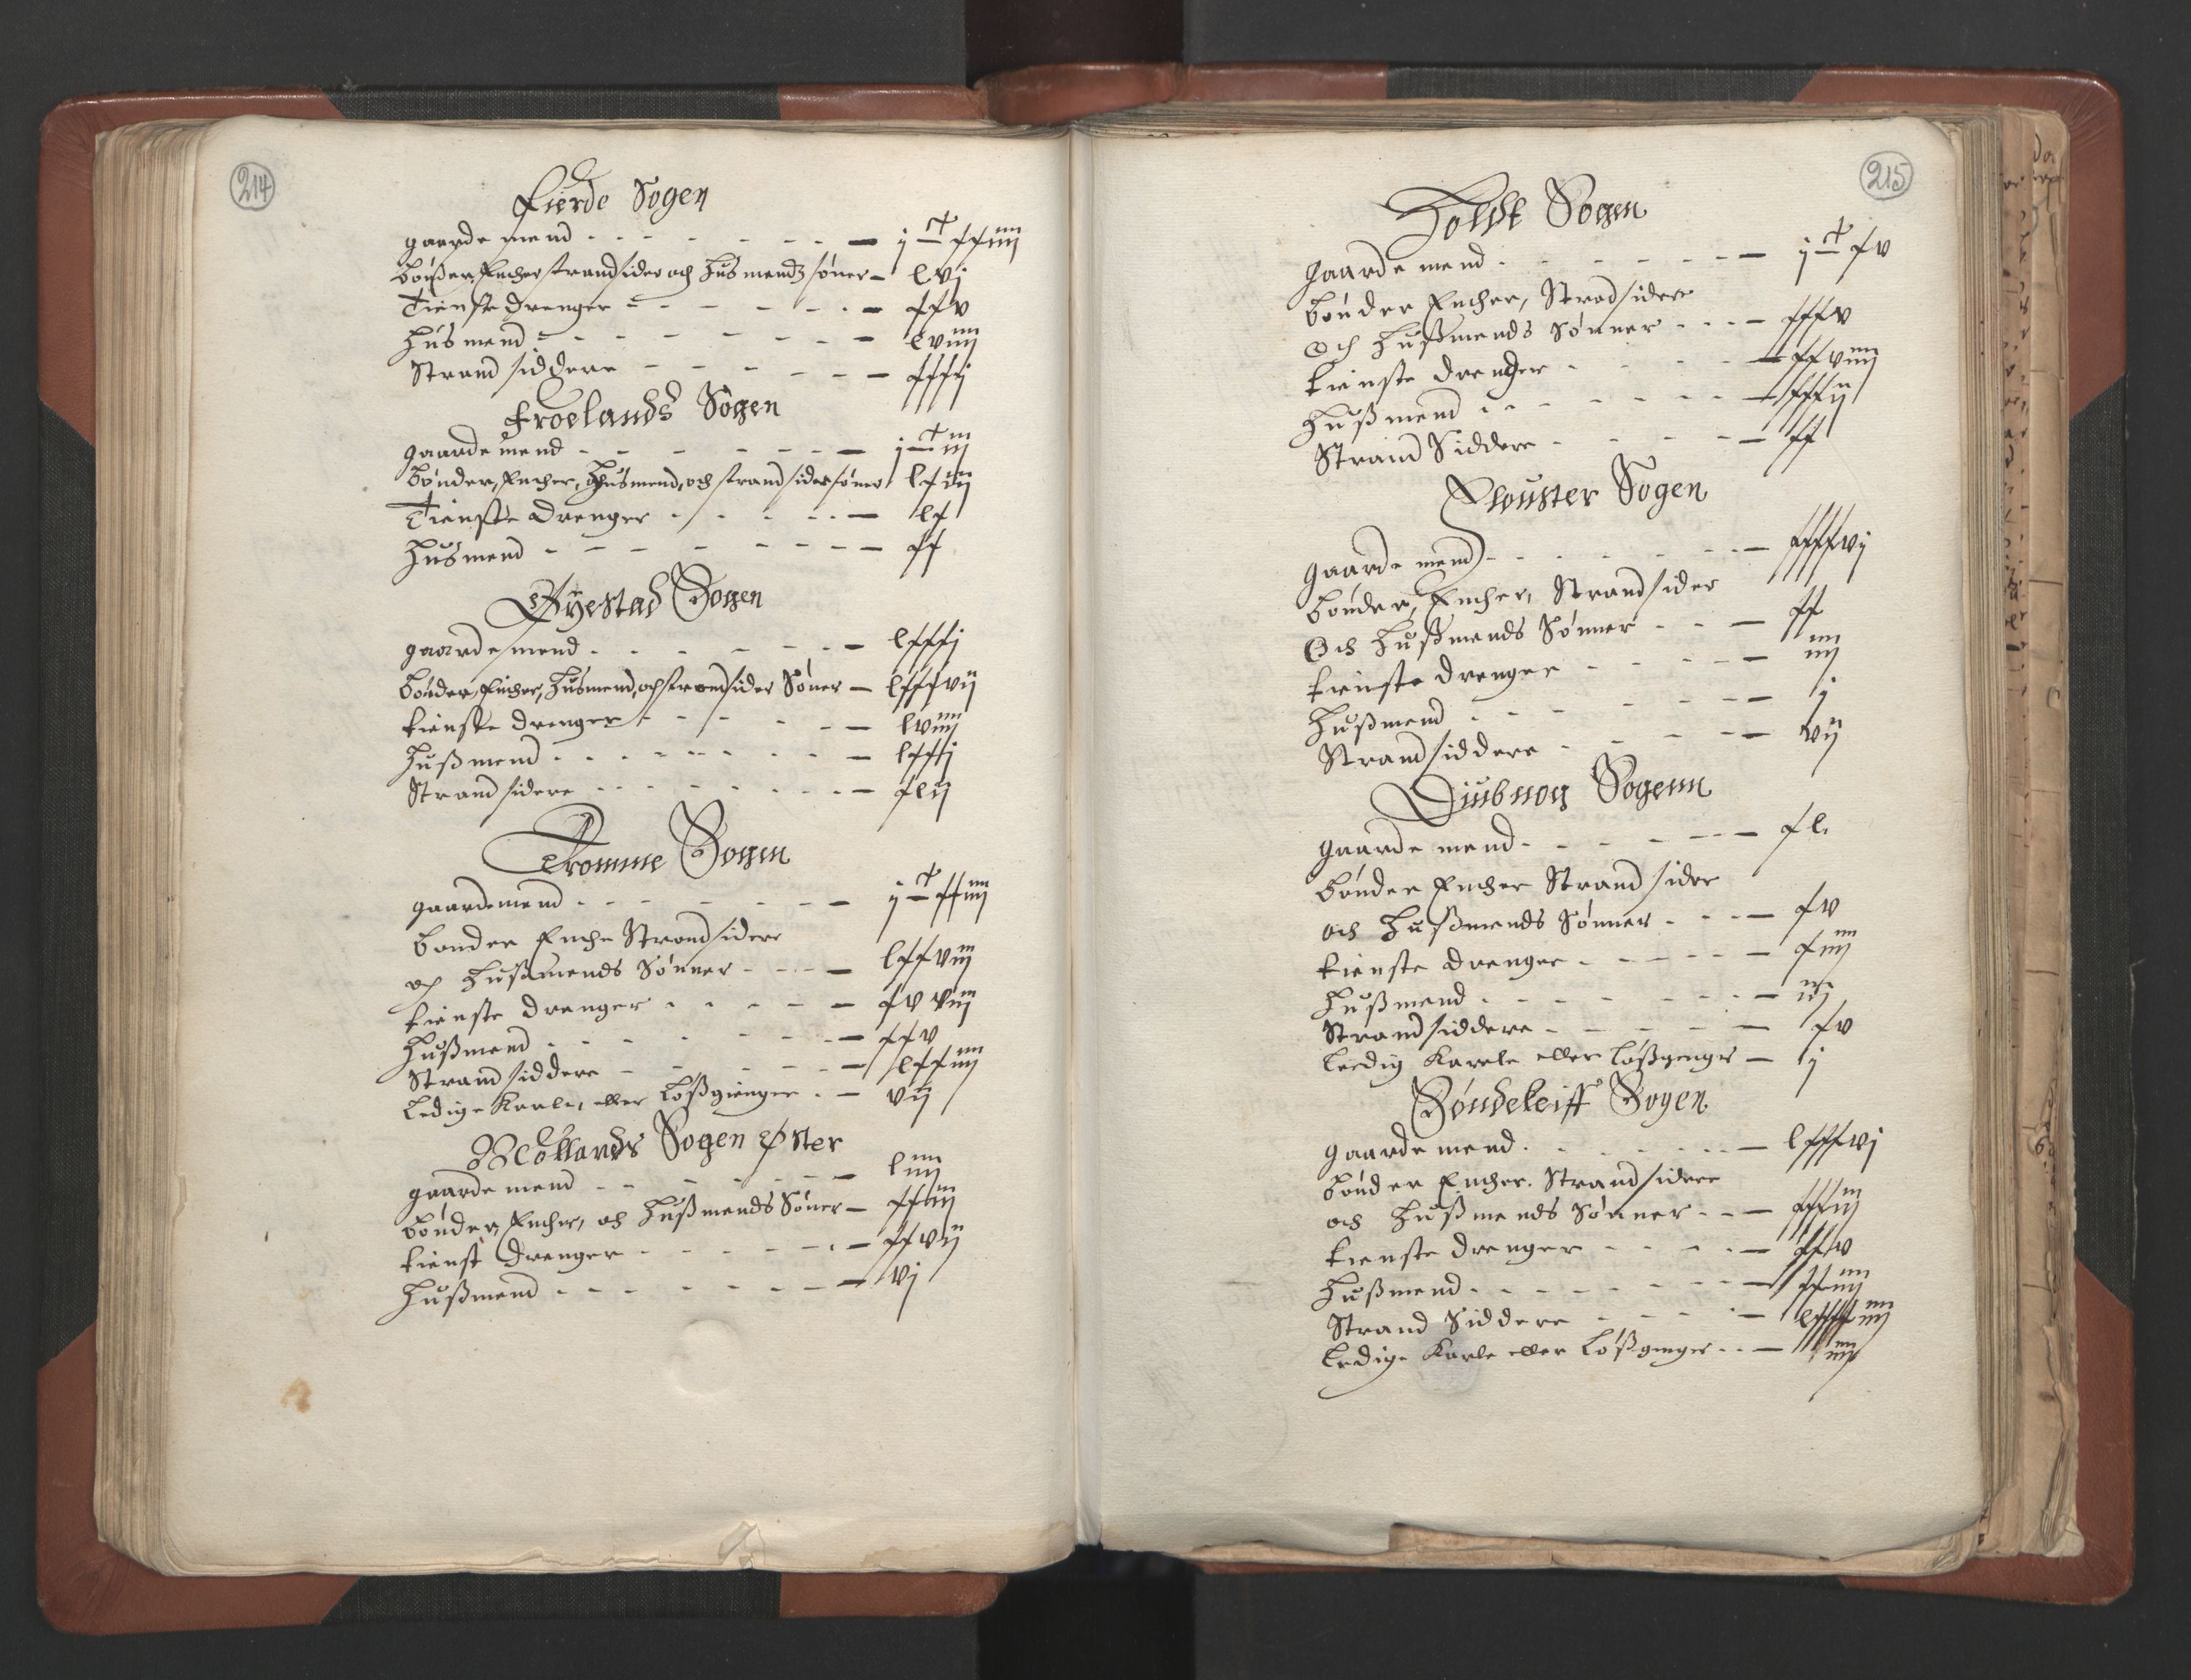 214
Fierde Sogen
gaarde mend - - - - - - - j C xxiiij
bønder, Encher strandsider och Husmends sønner - lvj
Tienste drenger - - - - - - xxv
Husmend - - - - - - - lviiij
Strand siddere - - - - - - xxxj
Froelands Sogen
gaarde mend - - - - - - - j C iij
bønder, Encher, Husmend, och strandsider sønner lxiij
Tienste drenger - - - - - lx
Husmend - - - - - - - - xx
Øyestad Sogen
gaarde mend - - - - - - lxxxj
bønder, Encher, Husmend, och strandsider Sønner - lxxxvij
tienste drenger - - - - - - lviiij
Hußmend - - - - - - - - lxxxj
Strand sidere - - - - - - - - xlij
Tromme Sogen
gaardemend - - - - - - - j C xxiiij
bonder Enche Strandsidere
och Hußmends Sønner - - - - lxxviij
tienste drenger - - - - - xv viij
Hußmend - - - - - - - xxv
Strand siddere - - - - - - lxxiiij
Ledige Karle, eller Loßgienger - - vij
Mollands Sogen Øster
gaarde mend - - - - - - - liiij
bønder, Encher, och Hußmends Søner - xxiij
tienst drenger - - - - - - - xxvij
Hußmend - - - - - - - - vj
215
Holdt Sogen
gaarde mend - - - - - - - j C xv
bønder Encher, Strandsidere
Och Hußmends Sønner - - - - xxxv
tienste drenger - - - - - xxviiij
Hußmend - - - - - - - - xxxij
Strand Siddere - - - - - - xx
Flouster Sogen
gaarde mend - - - - - - - xxxxvij
bønder, Encher, Strandsider
Och Hußmends Sønner - - - xx
tienste drenger - - - - - - iiij
Hußmend - - - - - - - j
Strandsiddere - - - - - - vij
Diubuog Sogenn
gaarde mend - - - - - - - xl
bønder Encher Strandsider
och Hußmends Sønner - - - - xv
tienste drenger - - - - - - xiiij
Hußmend - - - - - - - - iij
Strandsiddere - - - - - - xv
Leedig Karle eller Løßgenger - j
Søndeleiff Sogen
gaarde mend - - - - - - - lxxxvj
bønder Encher. Strandsidere
och Hußmends Sønner - - - xxxiij
tienste drenger - - - - - xxv
Hußmend - - - - - - - - xxiiij
Strand Siddere - - - - - lxxxxiiij
Ledige Karle eller Løßgenger - - - iiij